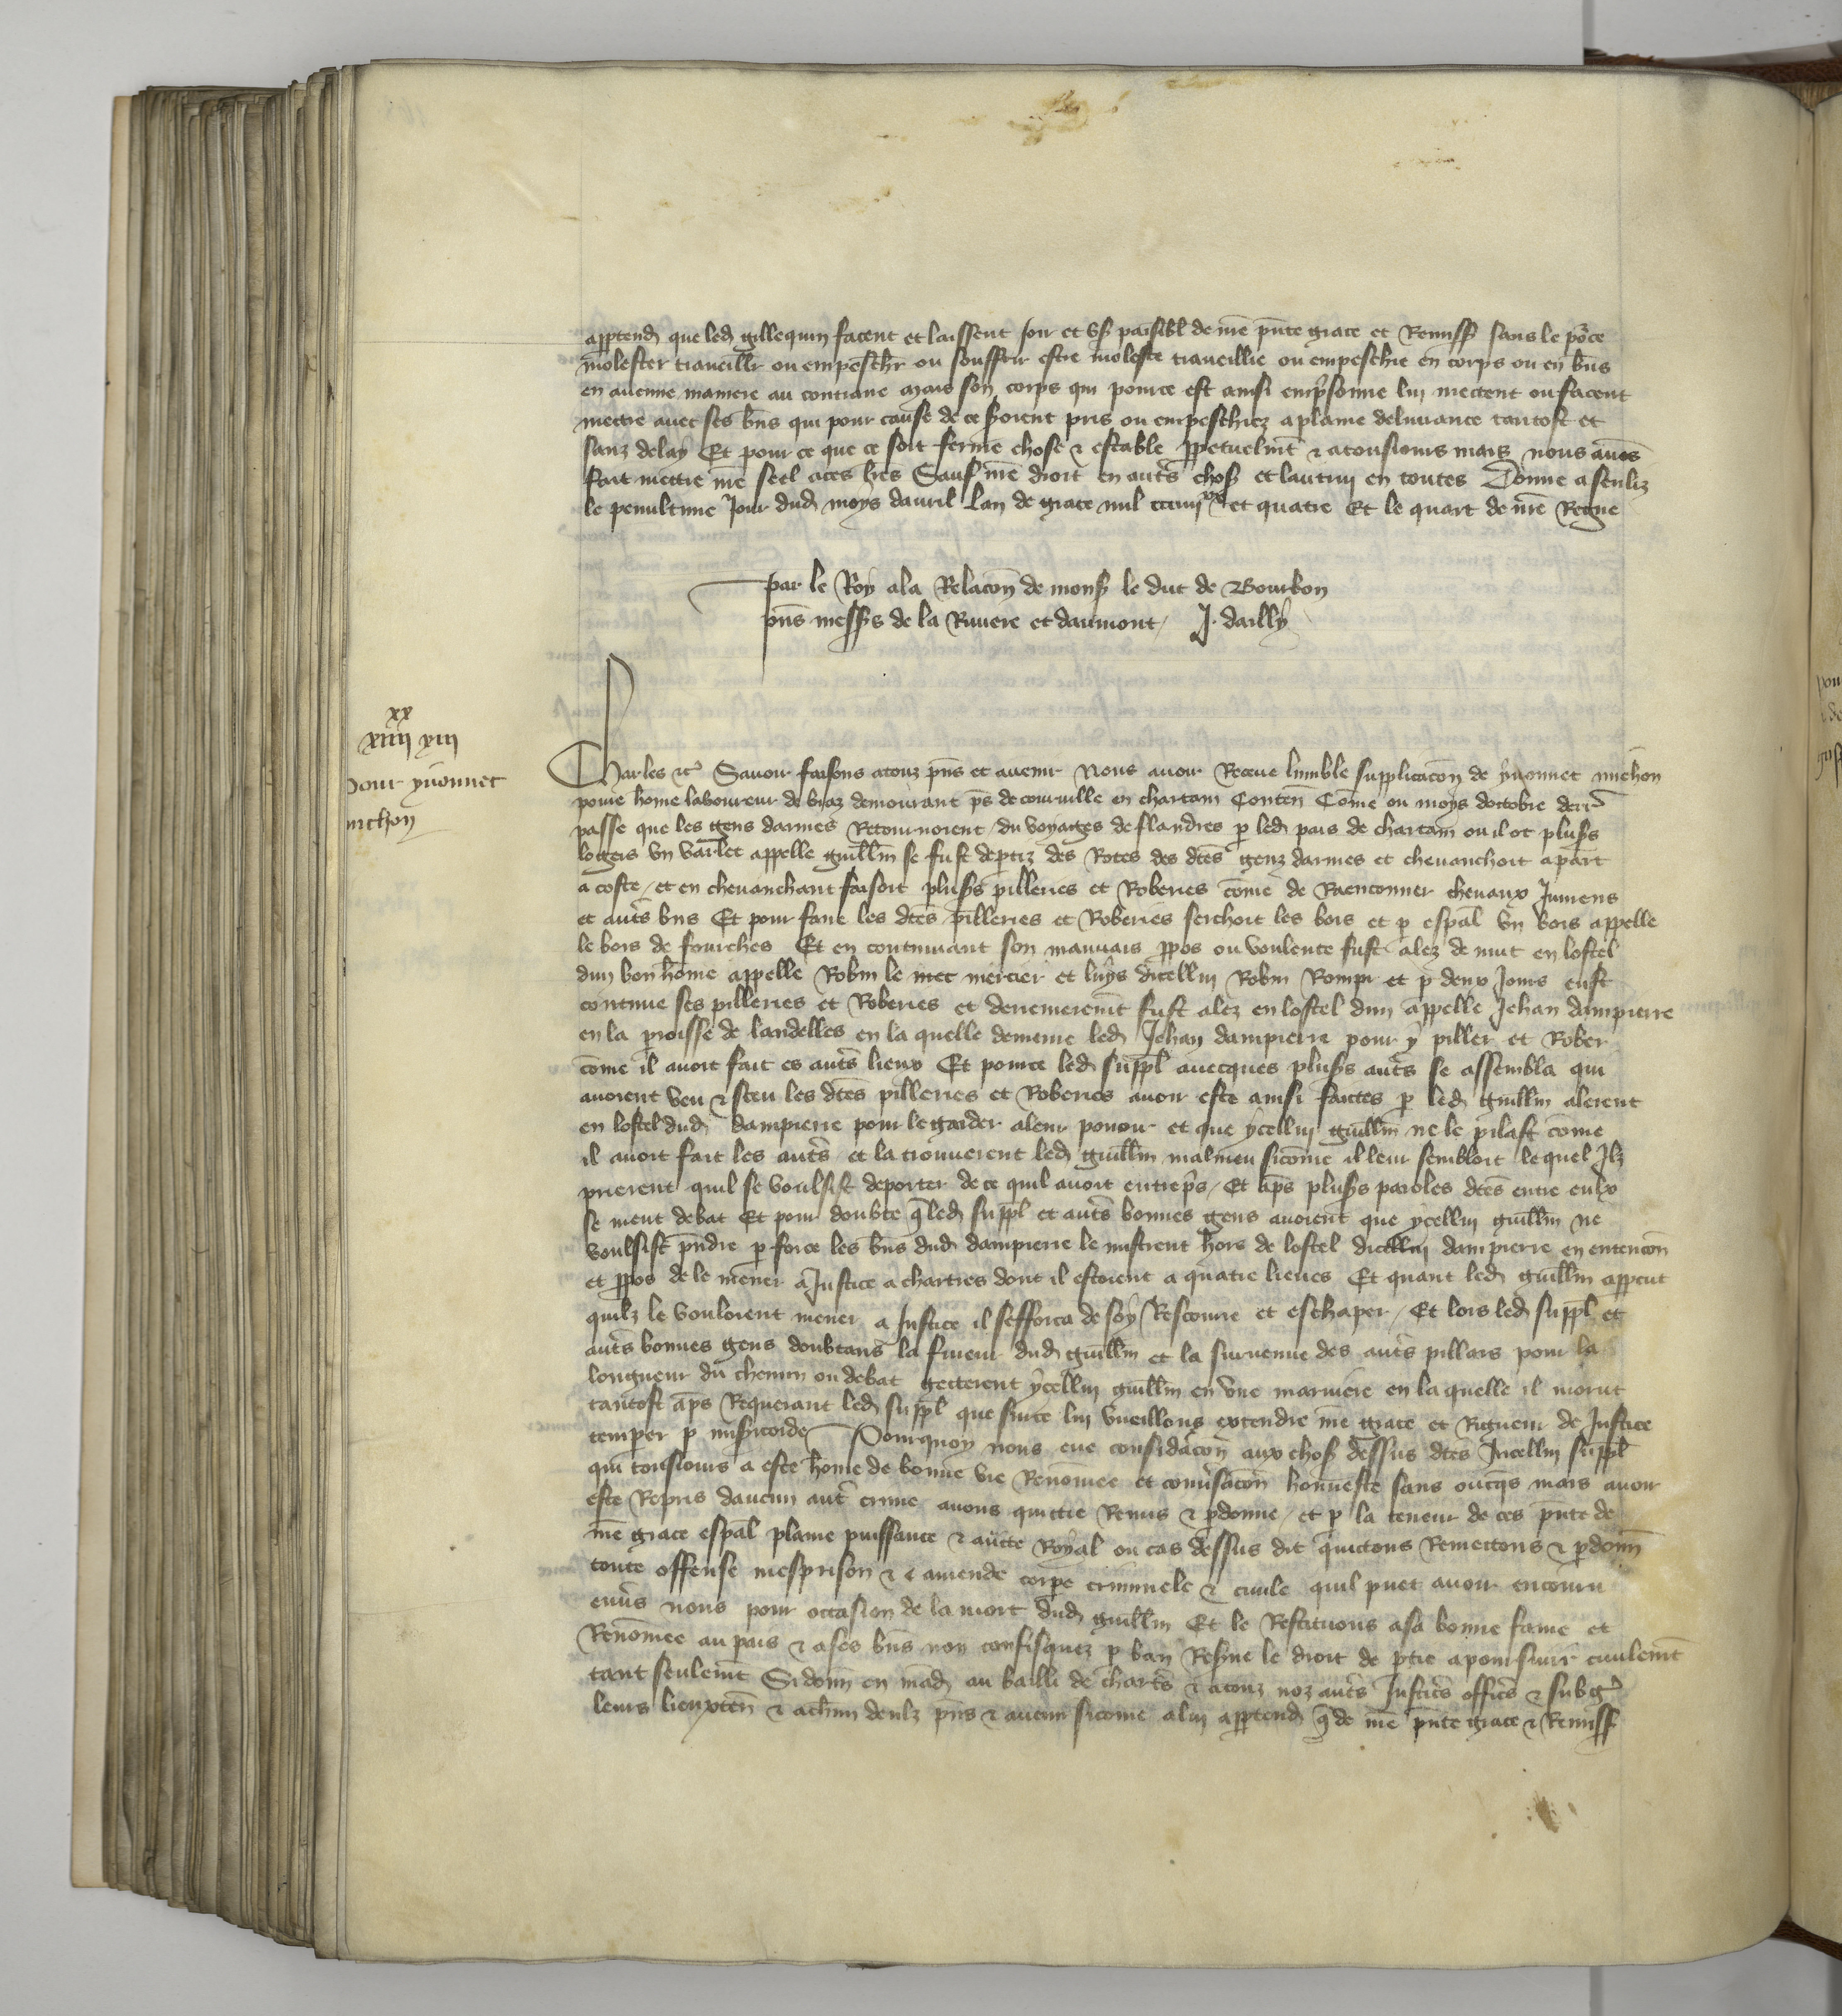 apptend que led gillequin facent et laissent joir et us paisibl de nre pnte grace et Remiss sans le pour ce
molester traveillr ou empeschr ou souffrir estre moleste traveillie ou empeschie en corps ou en bns
en aucune maniere au contraire mais son corps qui pour ce est ainsi emprisonne lui mettent ou facent
mettre avec ses bns qui pour cause de ce seroient pris ou empeschiez a plaine delivrance tantost et
sanz delay Et pour ce que ce soit ferme chose & estable ppetuelmt & a tousiours mais nous avons
fait mettre nre seel a ces lres Sauf nre droit en autrs chos et lautrui en toutes Donne a senliz
le penultime Jour dud moys davril Lan de grace mil ccc iiij xx et quatre Et le quart de nre Regne
par le Roy a la Relacon de mons le duc de Bourbon
pns messrs de la Riviere et daumont J. dailly
xx
xiiij xiij
pour yvonnet
michon
Charles etc Savoir faisons a touz pns et avenir Nous avoir Receue lumble supplicacon de yvonnet michon
povre home laboureur de braz demourant ps de courville en chartain Conten Come ou moys doctobre derr
passe que les gens darmes Retournoient du voyages de flandres p led pais de chartain ou il ot plusrs
logeis un varlet appelle guillm se fust deptiz des Rotes des dtes genz darmes et chevauchoit a part
a coste / et en chevauchant faisoit plusrs pilleries et Roberies come de Raenconner chevaux Jumens
et autrs bns Et pour faire les dtes pilleries et Roberies serchoit les bois et p espal un bois appelle
le bois de fourches Et en continuant son mauvais ppos ou voulente fust alez de nuit en lostel
dun bon home appelle Robin le mec mercier et luys dicellui Robin Rompi et p deux Jours eust
continue ses pilleries et Roberies et derrenierement fust alez en lostel dun appelle Jehan dampierre
en la proisse de landelles en la quelle demeure led Jehan dampierre pour y piller et Rober
come il avoit fait es autrs lieux Et pour ce led suppl avecques plusrs autrs se assembla qui
avoient veu & sceu les dtes pilleries et Roberies avoir este ainsi faictes p led guillm alerent
en lostel dud dampierre pour le garder a leur povoir et que ycellui guillm ne le pilast come
il avoit fait les autrs et la trouverent led guillm malmeu sicome il leur sembloit le quel Ilz
prierent quil se voulsist deporter de ce quil avoit entrepris / Et aps plusrs paroles dtes entre eulx
se meut debat Et pour doubte q led suppl et autrs bonnes gens avoient que ycellui guillm ne
voulsist pndre p force les bns dud dampierre le mistrent hors de lostel dicellui dampierre en entencon
et ppos de le mener a Justice a chartres dont il estoient a quatre lieues Et quant led guillm appcut
quilz le vouloient mener a Justice il sefforca de soy Rescourre et eschaper / Et lors led suppl et
autrs bonnes gens doubtans la fureur dud guillm et la survenue des autrs pillars pour la
longueur du chemin ou debat getterent ycellui guillm en une marniere en la quelle il morut
tantost aps Requerant led suppl que sur ce lui vueillons extendre nre grace et Rigueur de Justice
temper p misericorde Pourquoy nous eue consideracon aux chos dessus dtes Jcellui suppl
qui tousiours a este home de bonne vie Renomee et conversacon honneste sans oncqs mais avoir
este Repris daucun autr crime avons quictie Remis & pdonne / et p la teneur de ces pnte de
nre grace espal plaine puissance & aucte Royal ou cas dessus dit quictons Remectons & pdonn
toute offense mesprison & & amende corpe criminele & civile quil puet avoir encouru
envrs nous pour occasion de la mort dud guillm Et le Restituons a sa bonne fame et
Renomee au pais & a ses bns non confisquez p ban Resrve le droit de ptie a poursuir civilemt
tant seulemt Si donn en mad au bailli de chartrs & a touz noz autrs Justicrs officrs & subgz
leurs lieuxten & a chun deulz pns & avenir sicome a lui apptend q de nre pnte grace & Remiss